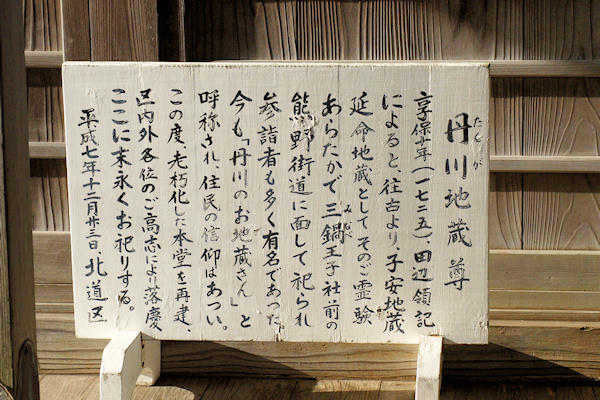 丹川地蔵尊
たんがが
享保廿年(一七二五)、田辺領記
によると、往古より子安地蔵
延命地蔵としてそのご霊験
あらたかで三鍋王子社前の
みなべ
熊野街道に面して祀られ
参詣者も多く有名であった
今も「丹川のお地蔵さん」と
呼称され、住民の信仰はあつい。
この度、老朽化した本堂を再建、
区内外各位のご高志により落慶
ここに末永くお祀りする。
平成七年十二月廿三日 北道区